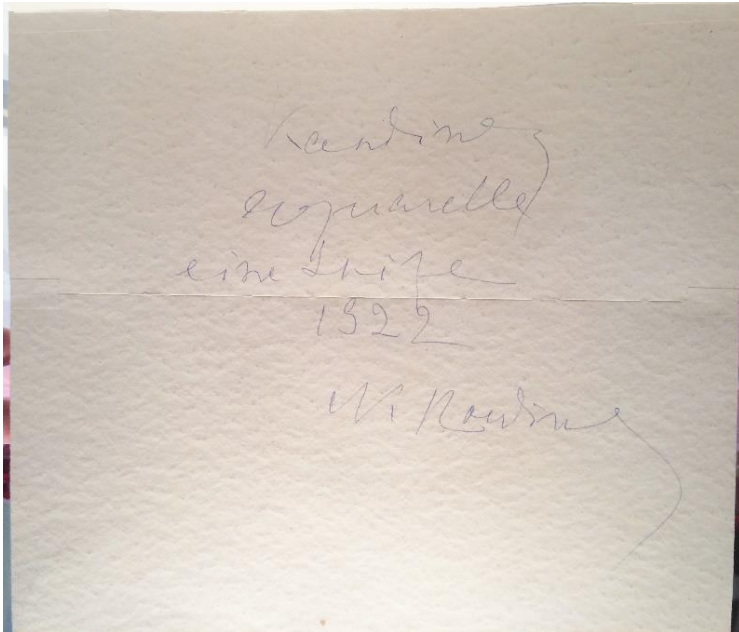 Kandinsky
aquarelle
eine
1922
W. Kandinsky